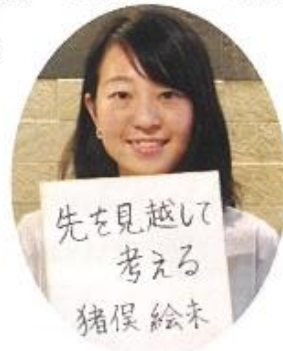 先を見越して
考える
猪俣絵未